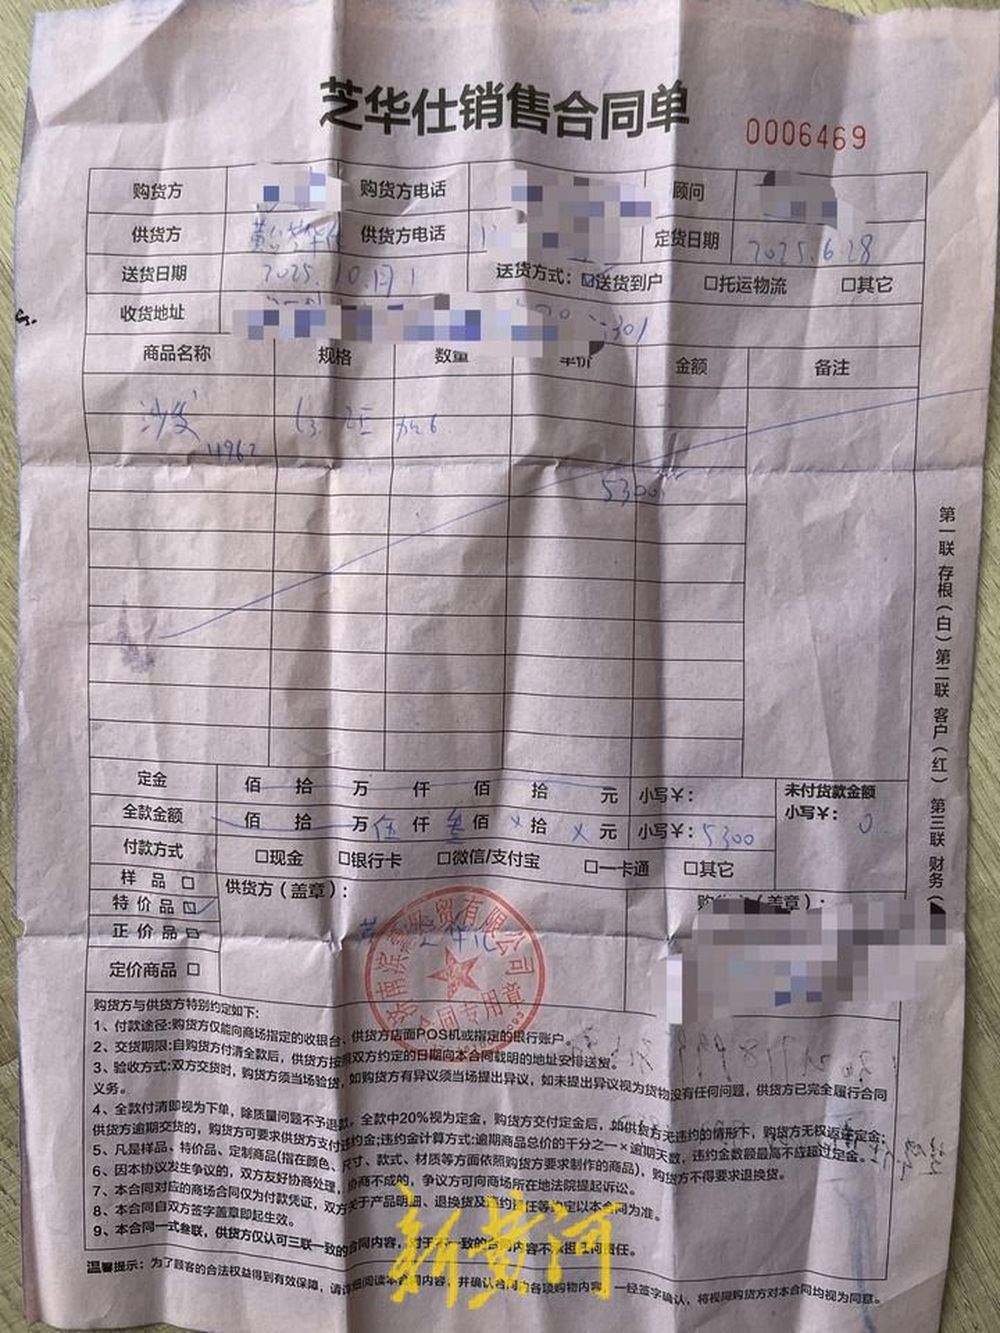 芝华仕销售合同单
0006469
购货方 购货方电话 顾问
供货方 芝华仕 供货方电话 定货日期 2025.6.28
送货日期 2025.10.1 送货方式：☑送货到户 □托运物流 □其它
收货地址 301
商品名称 规格 数量 单价 金额 备注
沙发
5300
定金 佰 拾 万 仟 佰 拾 元 小写￥： 未付货款金额
小写￥：0
全款金额 佰 拾 万 伍 仟 叁 佰 × 拾 × 元 小写￥：5300
付款方式 □现金 □银行卡 □微信/支付宝 □一卡通 □其它
样 品 □ 供货方（盖章）： 购货方（盖章）：
特价品 ☑
正价品 □
定价商品 □
合同专用章
购货方与供货方特别约定如下:
1、付款途径:购货方仅能向商场指定的收银台、供货方店面POS机或指定的银行账户。
2、交货期限:自购货方付清全款后，供货方按照双方约定的日期向本合同载明的地址安排送货。
3、验收方式:双方交货时，购货方须当场验货，如购货方有异议须当场提出异议，如未提出异议视为货物没有任何问题，供货方已完全履行合同
义务。
4、全款付清即视为下单，除质量问题不予退款，全款中20%视为定金，购货方交付定金后，如供货方无违约的情形下，购货方无权返还定金；
供货方逾期交货的，购货方可要求供货方支付违约金;违约金计算方式:逾期商品总价的千分之一×逾期天数，违约金数额最高不应超过定金。
5、凡是样品、特价品、定制商品(指在颜色、尺寸、款式、材质等方面依照购货方要求制作的商品)，购货方不得要求退换货。
6、因本协议发生争议的，双方友好协商处理，协商不成的，争议方可向商场所在地法院提起诉讼。
7、本合同对应的商场合同仅为付款凭证，双方关于产品明细、退换货及违约责任等约定以本合同为准。
8、本合同自双方签字盖章即起生效。
9、本合同一式叁联，供货方仅认可三联一致的合同内容，对于不一致的合同内容不承担任何责任。
温馨提示：为了顾客的合法权益得到有效保障，请详细阅读本合同内容，并确认合同内各项购物内容，一经签字确认，将视同购货方对本合同均视为同意。
第一联 存根（白）第二联 客户（红） 第三联 财务（
新黄河